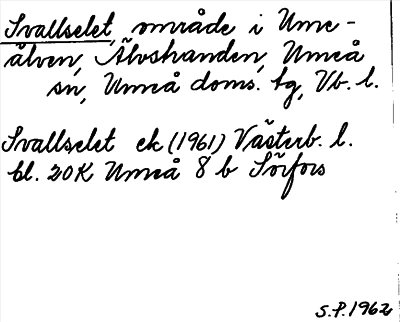 Svallselet, område i Ume-
älven, Älvshanden, Umeå
sn, Umeå doms. tg, Vb. l.
Svallselet ek (1961) Västerb. l.
bl. 20K Umeå 8 b Sörfors
S.P. 1962